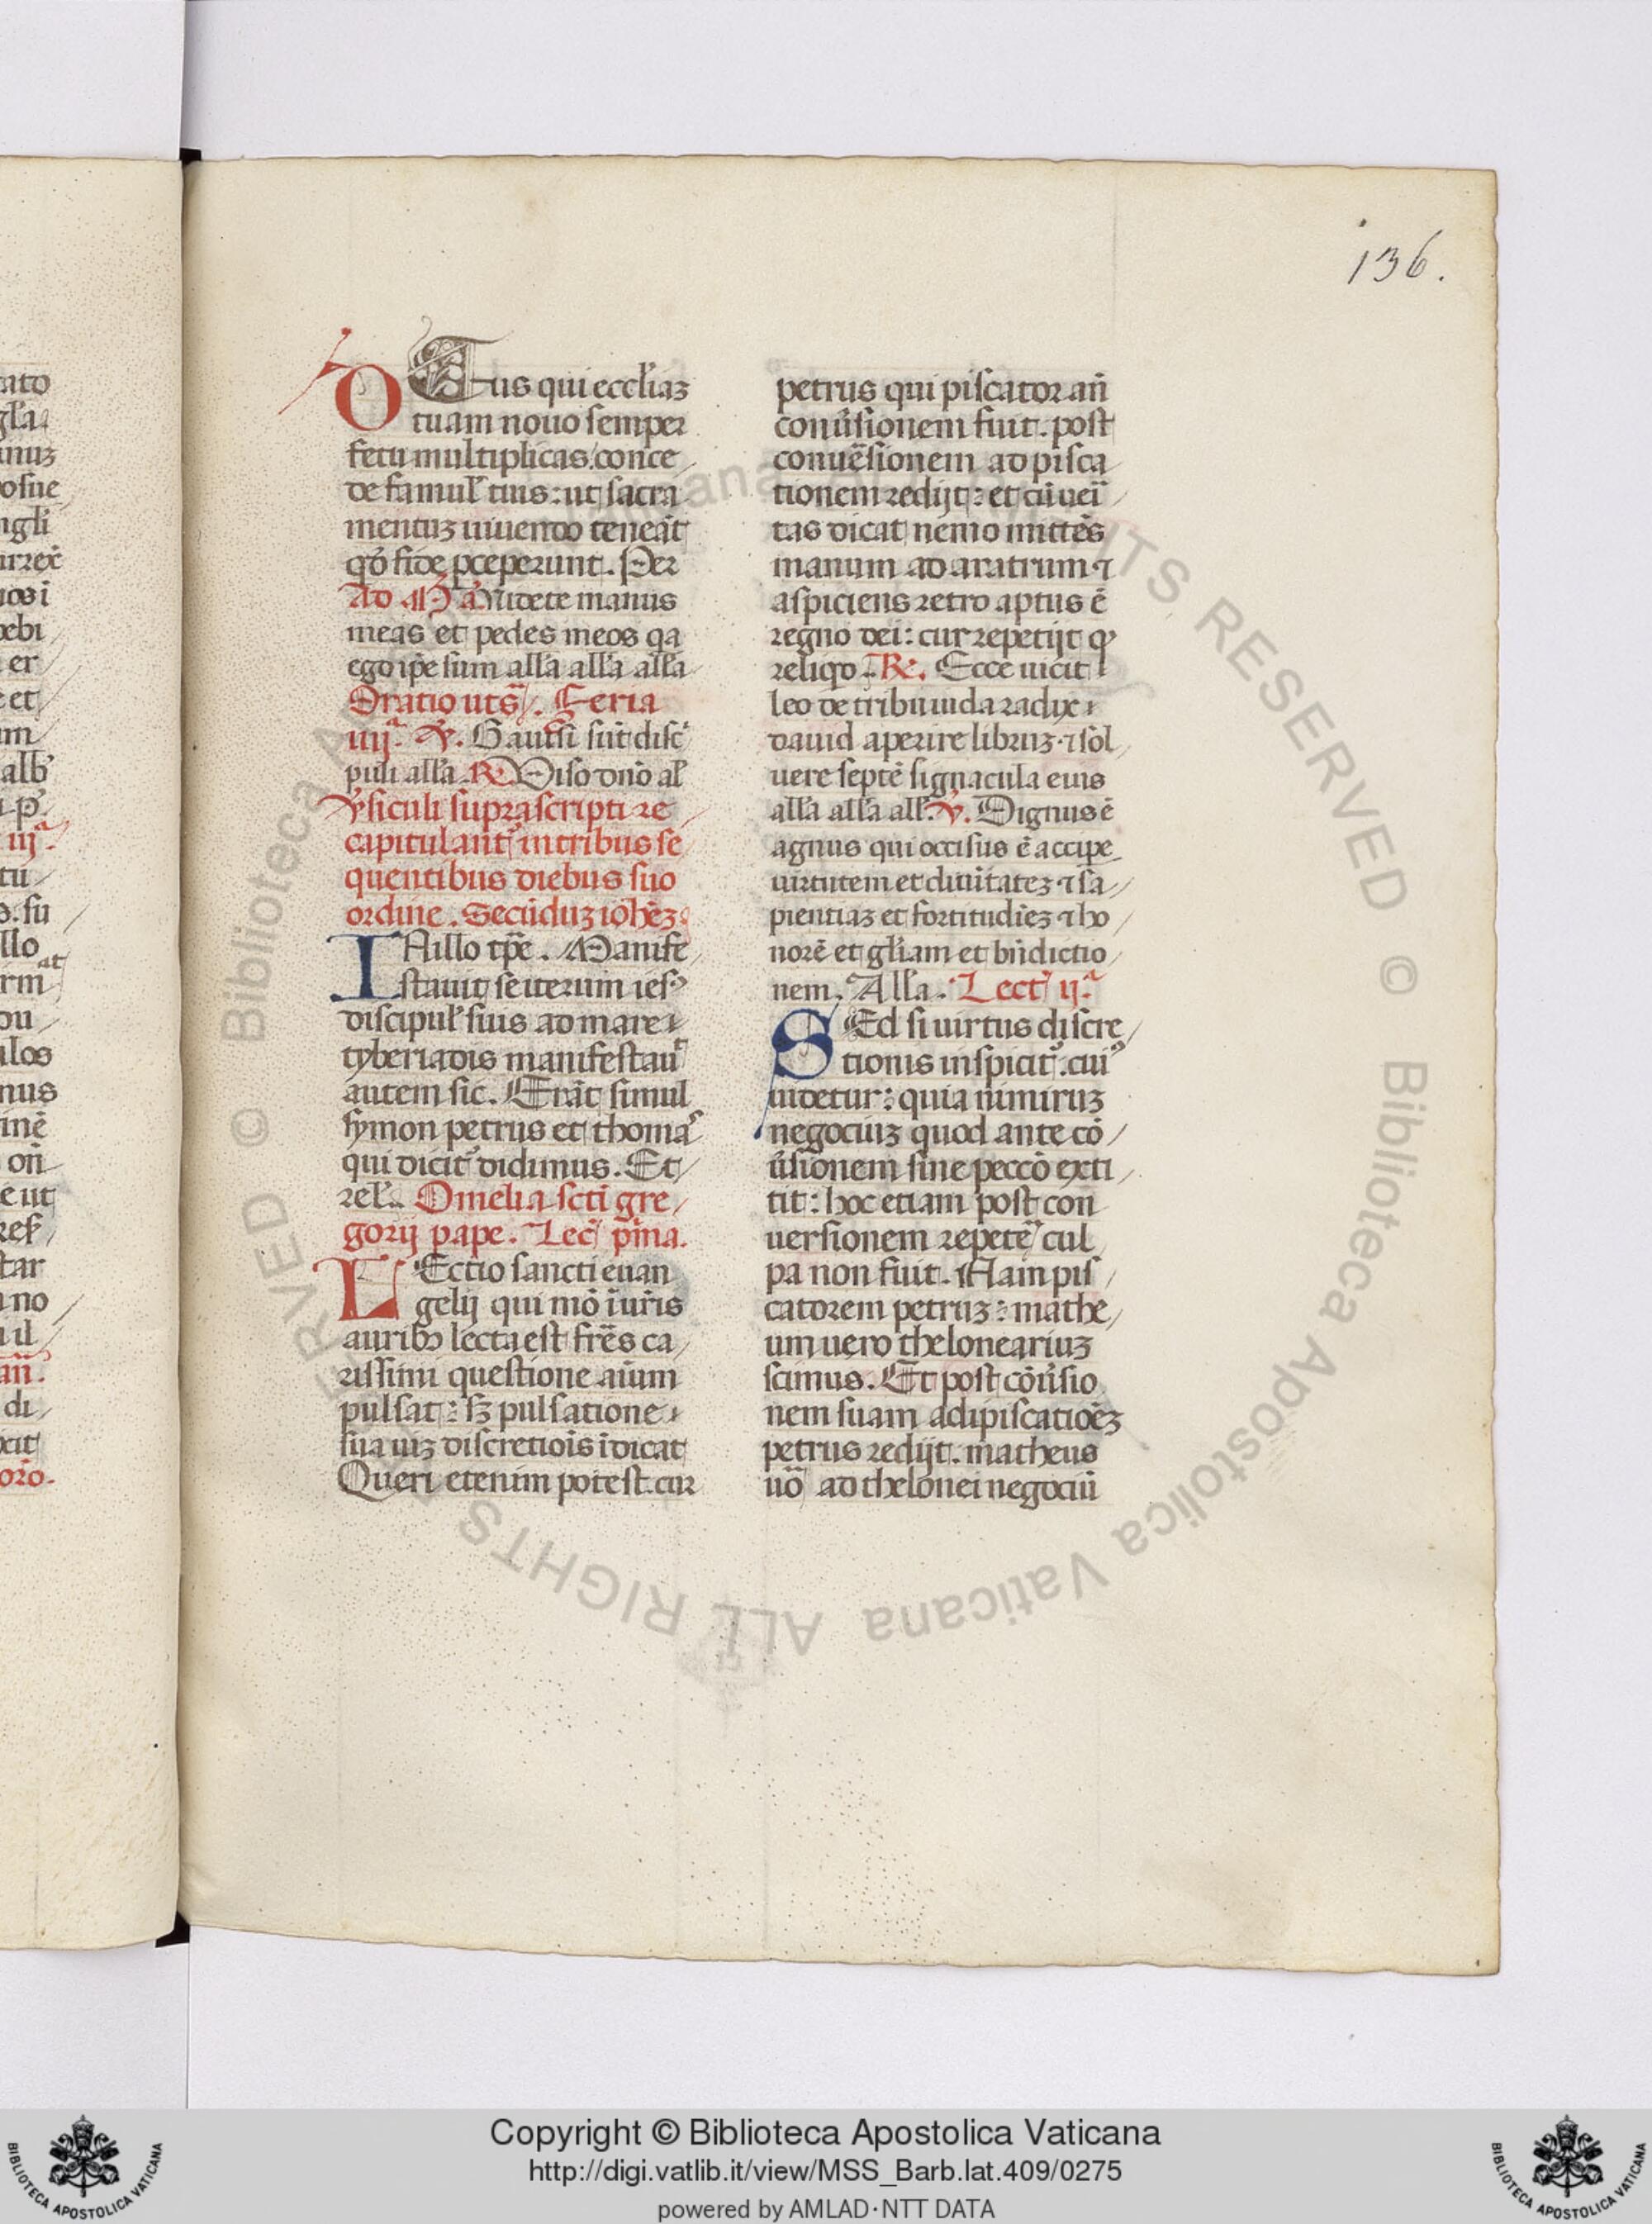 136.
Eus qui eccl'iaz
tuam nouo semper
fetu multiplicas conce
de famul' tuis: ut sacra
mentuz uiuendo teneāt
qđ fide pceperunt. Per
Ad M̄ a. Uidete manus
meas et pedes meos qa
ego ip̄e sum all'a all'a all'a
Oratio ut sᵃ. Feria
iiijᵃ. V. Gauisi sūt disc
puli all'a. R. Uiso dn̄o al'
Vsiculi suprascripti re
capitulant' in tribus se
quentibus diebus suo
ordine. Secūduz ioh̄ez.
IN illo tp̄e. Manife
stauit se iterum ies'
discipul' suis ad mare
tyberiadis manifestauᵗ
autem sic. Erāt simul
symon petrus et thomaˢ
qui dicit' didimus. Et
rel'. Omelia sc̄ti gre
gorij pape. Lec̄ pᵢma.
LEctio sancti euan
gelij qui mō ī ur̄is
aurib; lecta est fr̄es ca
rissimi questione aīum
pulsat: sz pulsatione
sua uiz discretiois īdicat
Queri etenim potest cur
petrus qui piscator an̄
conūsionem fuit. post
conuēsionem ad pisca
tionem redijt: et cū ueī
tas dicat nemo mittēs
manum ad aratrum ⁊
aspiciens retro aptus ē
regno dei: cur repetijt q'
reliqo. R. Ecce uicit
leo de tribu iuda radix
dauid aperire libruz ⁊ sol
uere septē signacula euis
all'a all'a all'. V. Dignus ē
agnus qui occisus ē accipe
uirtutem et diuītatez ⁊ sa
pientiaz et fortitudīez ⁊ ho
norē et gl'iam et bn̄dictio
nem. All'a. Lect' ijᵃ
SEd si uirtus discre
tionis inspicit'. cui'
uidetur: quia nimiruz
negociuz quod ante cō
ūsionem sine peccō exti
tit: hoc etiam post con
uersionem repetē cul
pa non fuit. Nam pis
catorem petruz: mathe
um uero theloneariuz
scimus. Et post cōūsio
nem suam ad piscatiōez
petrus redijt. matheus
uō ad thelonei negociū
Copyright © Biblioteca Apostolica Vaticana
http://digi.vatlib.it/view/MSS_Barb.lat.409/0275
powered by AMLAD·NTT DATA